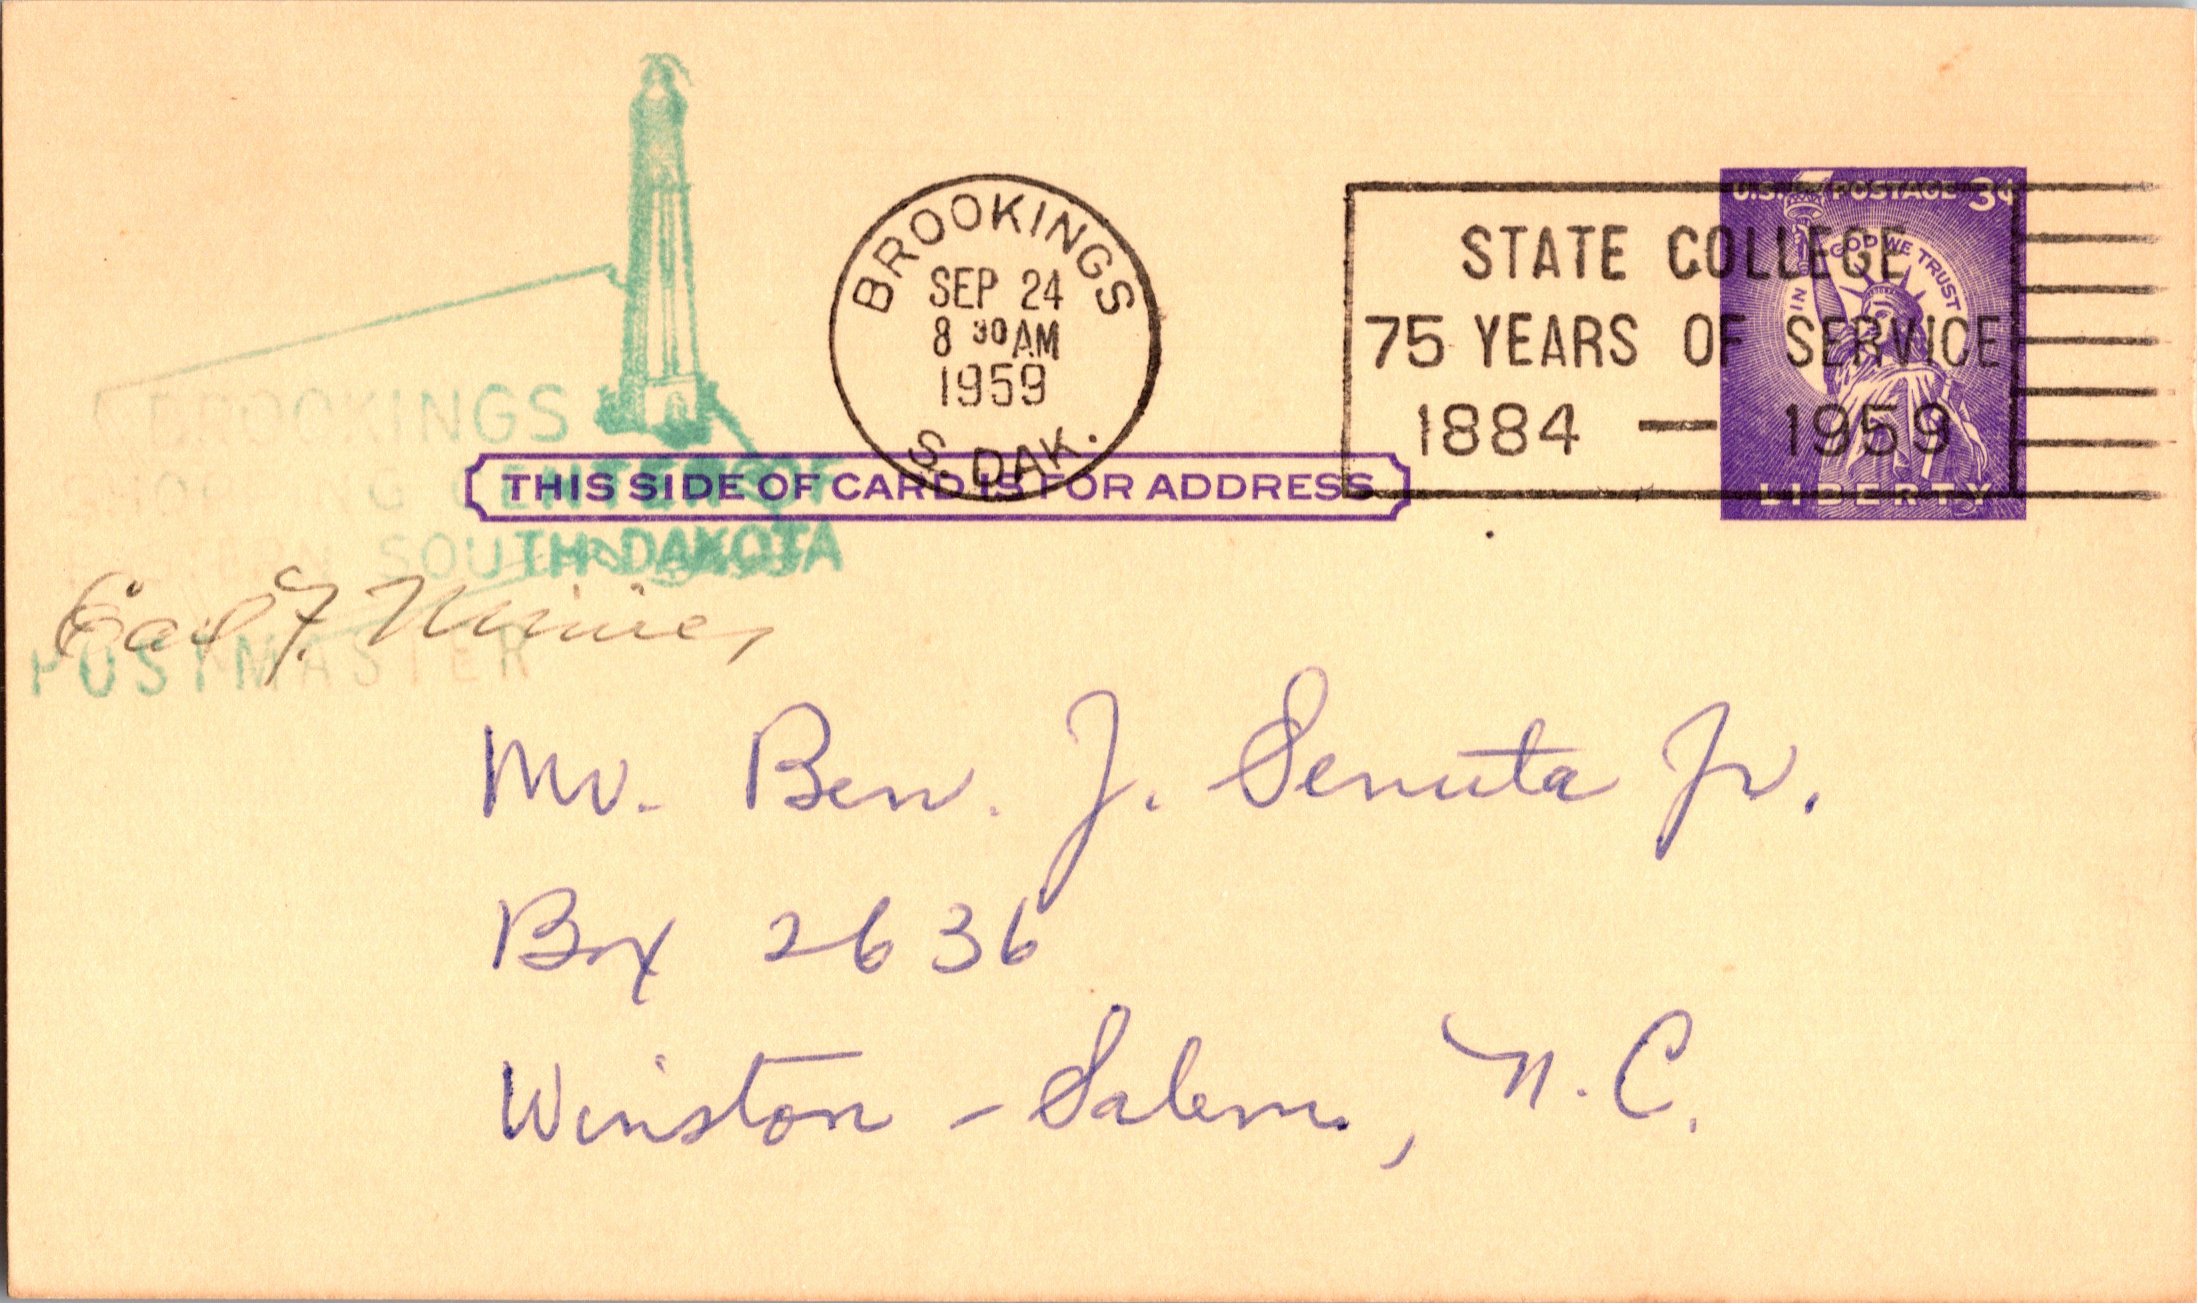 BROOKINGS
SHOPPING CENTER OF
EASTERN SOUTH DAKOTA
Earl F.
POSTMASTER
BROOKINGS
SEP 24
8 30 AM
1959
S. DAK.
STATE COLLEGE
75 YEARS OF SERVICE
1884 — 1959
U.S. POSTAGE 3¢
IN GOD WE TRUST
LIBERTY
THIS SIDE OF CARD IS FOR ADDRESS
Mr. Ben. J. Senuta Jr.
Box 2636
Winston-Salem, N.C.